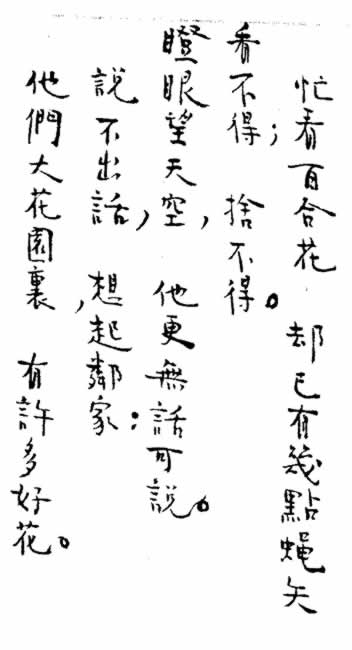 忙看百合花　却已有幾點蝇矢
看不得；　捨不得。
瞪眼望天空，　他更無話可說。
說不出話，　想起鄰家：
他們大花園裏，　有許多好花。